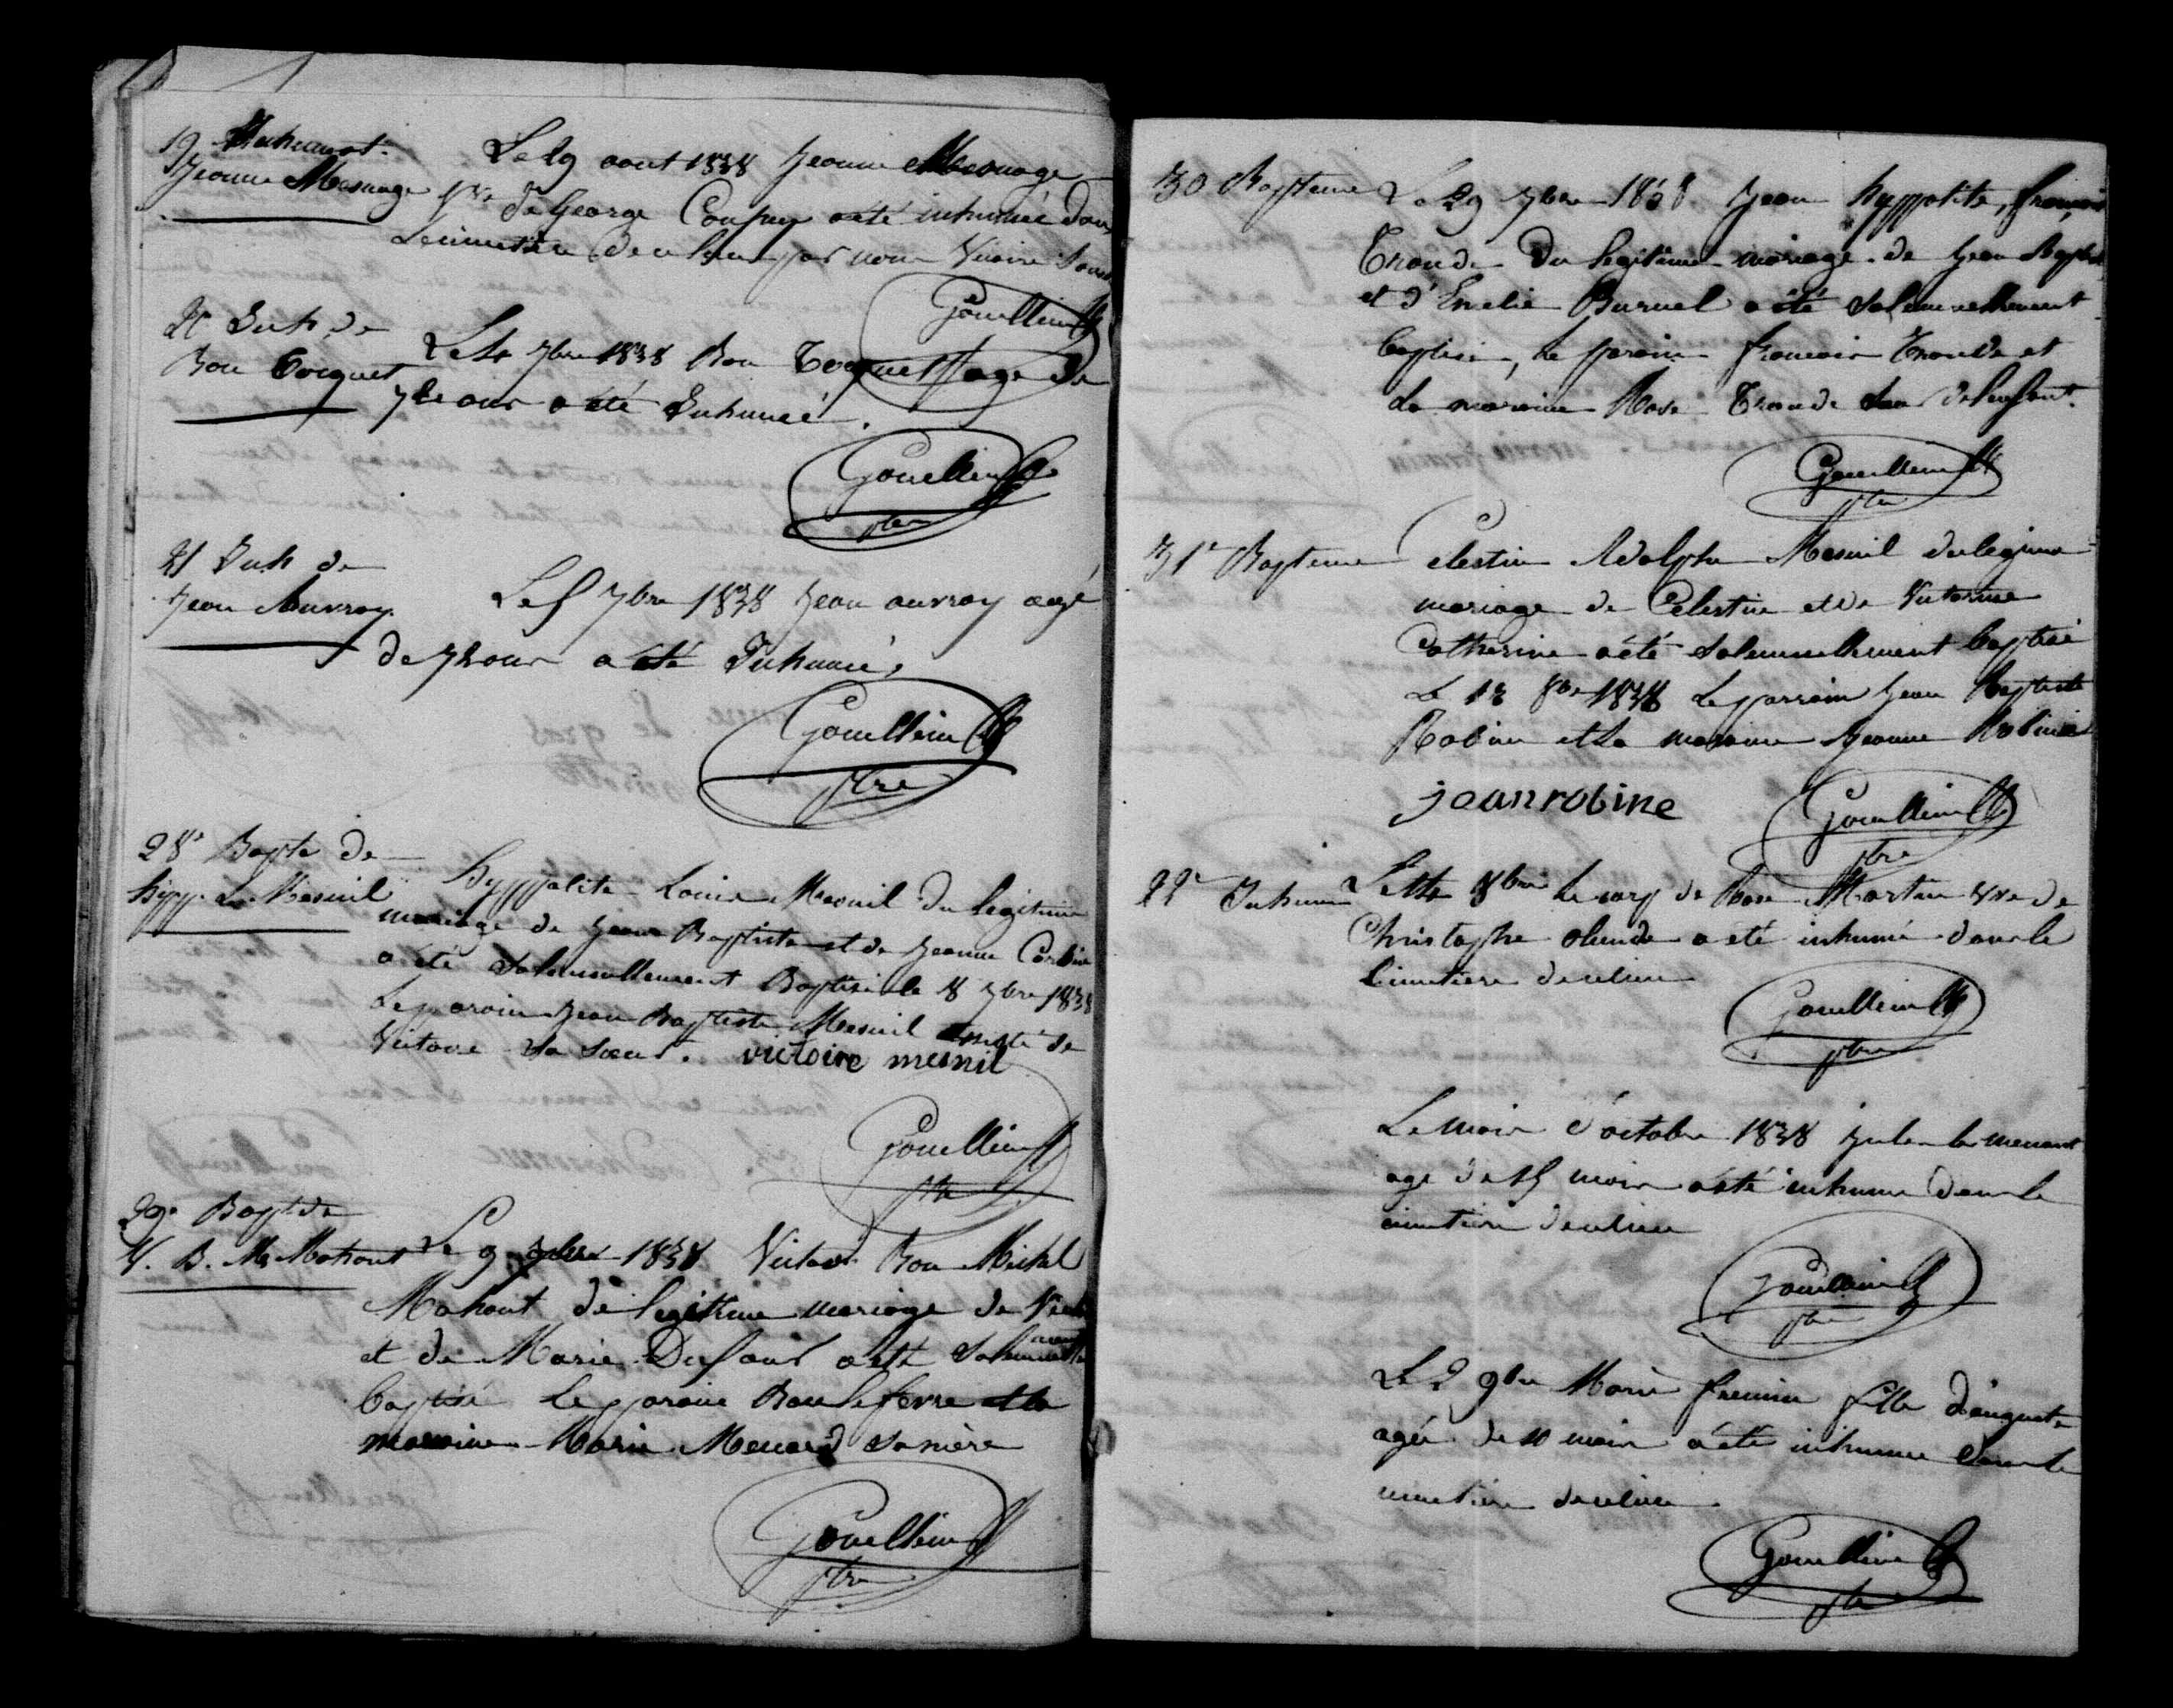 19 Inhumat.
Jeanne Mesnage
Le 29 aout 1838 Jeanne Mesnage
Vve de George Coupey a été inhumée dans
le cimetiere de ce lieu par nous Vicaire
Gouellein
20 Inh de
Bon Tocquet
Le 4 7bre 1838 Bon Tocquet age de
ans a été Inhumé.
Gouellein
ptre
21 Inh de
Jean Auvray
Le 5 7bre 1838 Jean auvray agé
de 72 ans a été Inhumé,
Gouellein
ptre
28e Bapte de
hipp. L. Mesnil
hyppolite Louis Mesnil du legitime
mariage de Jean Baptiste et de Jeanne
a été solennellement Baptisé le 8 7bre 1838
Le parain Jean Baptiste Mesnil assisté de
Victoire sa soeur. victoire mesnil
Gouellein
ptre
29e Bapt de
V. B. M. Mahaut
Le 9 7bre 1838 Victor Bon Michel
Mahaut de legitime mariage de
et de Marie Dufour a été solennellement
baptisé le parain Bon lefevre et la
maraine Marie Menard
Gouellein
ptre
30 Bapteme
Le 29 7bre 1838 Jean hyppolite, françois
Enonde Du legitime mariage de Jean Baptiste
et d'Emelie Buruel a été solennellement
baptisé, le parain francois Enonde et
La maraine Rose Enonde de l'enfant.
Gouellein
ptre
31e Bapteme
Celestin Adolphe Mesnil du legitime
mariage de Celestin et de Victorine
Catherine a été solennellement baptisé
Le 8bre 1838 Le parrain Jean Baptiste
Robine et la maraine Jeanne Robine
jean robine
Gouellein
ptre
22e Inhum
Le 8bre Le corp de Rose Martin vve de
Christophe a été inhumé dans le
Cimetiere de ce lieu
Gouellein
ptre
Le mois d'octobre 1838 Jules
age de 15 mois a été inhumé dans le
cimetiere de ce lieu
Gouellein
ptre
Le 2 9bre Marie fremine fille d'auguste
agée de 10 mois a été inhumee dans le
cimetiere de ce lieu
Gouellein
ptre